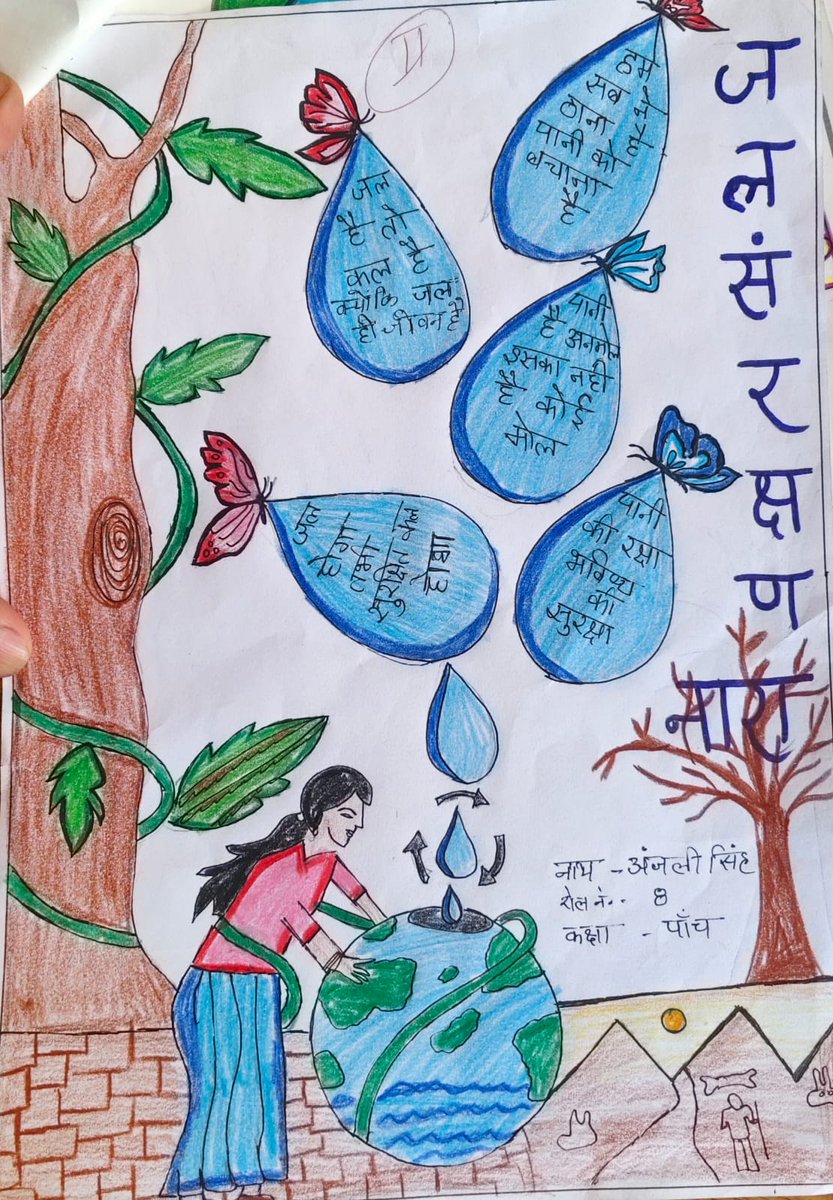 जलसंरक्षण
नारा
II
हम
सब
ठाना
पानी को
बचाना
है
जल
है तो है
कल
क्योंकि जल
ही जीवन है
पानी
है अनमोल
इसका नही
है कोई
मोल
जल
होगा
तभी
सुरक्षित कल
होगा
पानी
की रक्षा
भविष्य
की
सुरक्षा
नाम - अंजली सिंह
रोल नं.. 8
कक्षा - पाँच